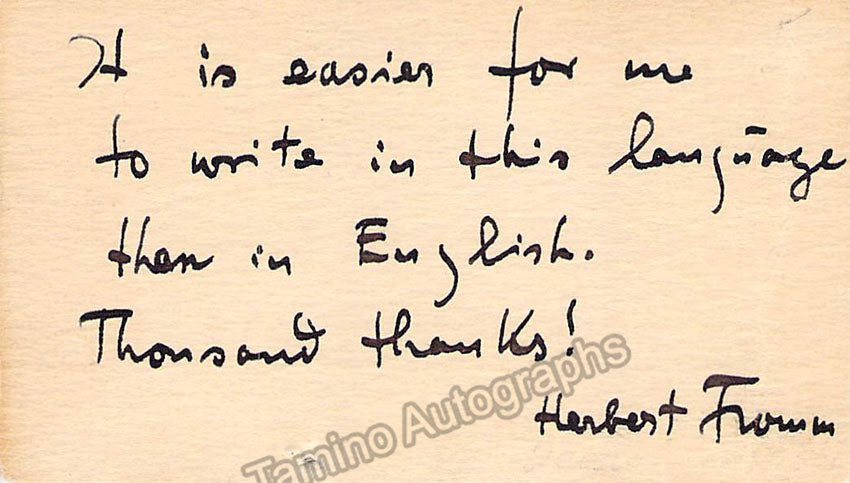 It is easier for me
to write in this language
then in English.
Thousand thanks!
Herbert Fromm
Tamino Autographs